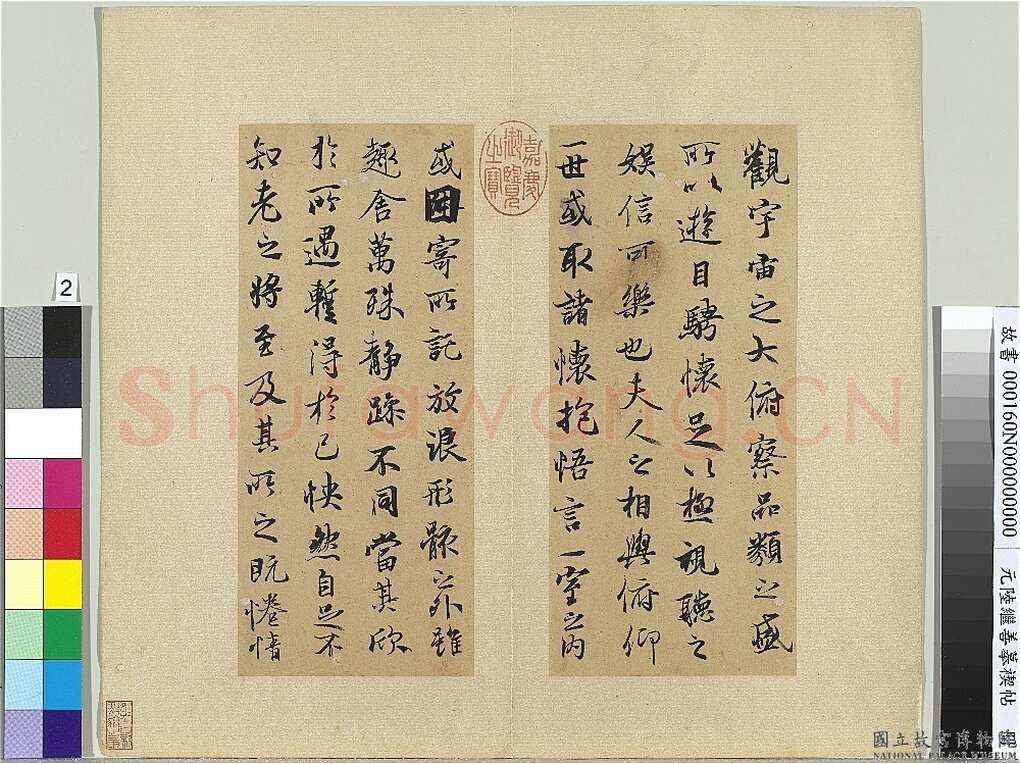 觀宇宙之大俯察品類之盛
所以遊目騁懷足以極視聽之
娛信可樂也夫人之相與俯仰
一世或取諸懷抱悟言一室之內
或因寄所託放浪形骸之外雖
趣舍萬殊靜躁不同當其欣
於所遇暫得於己怏然自足不
知老之將至及其所之既惓情
嘉慶御覽之寶
2
Shufawang.CN
故書 000160N000000000
元陸繼善摹禊帖
國立故宮博物院
NATIONAL PALACE MUSEUM